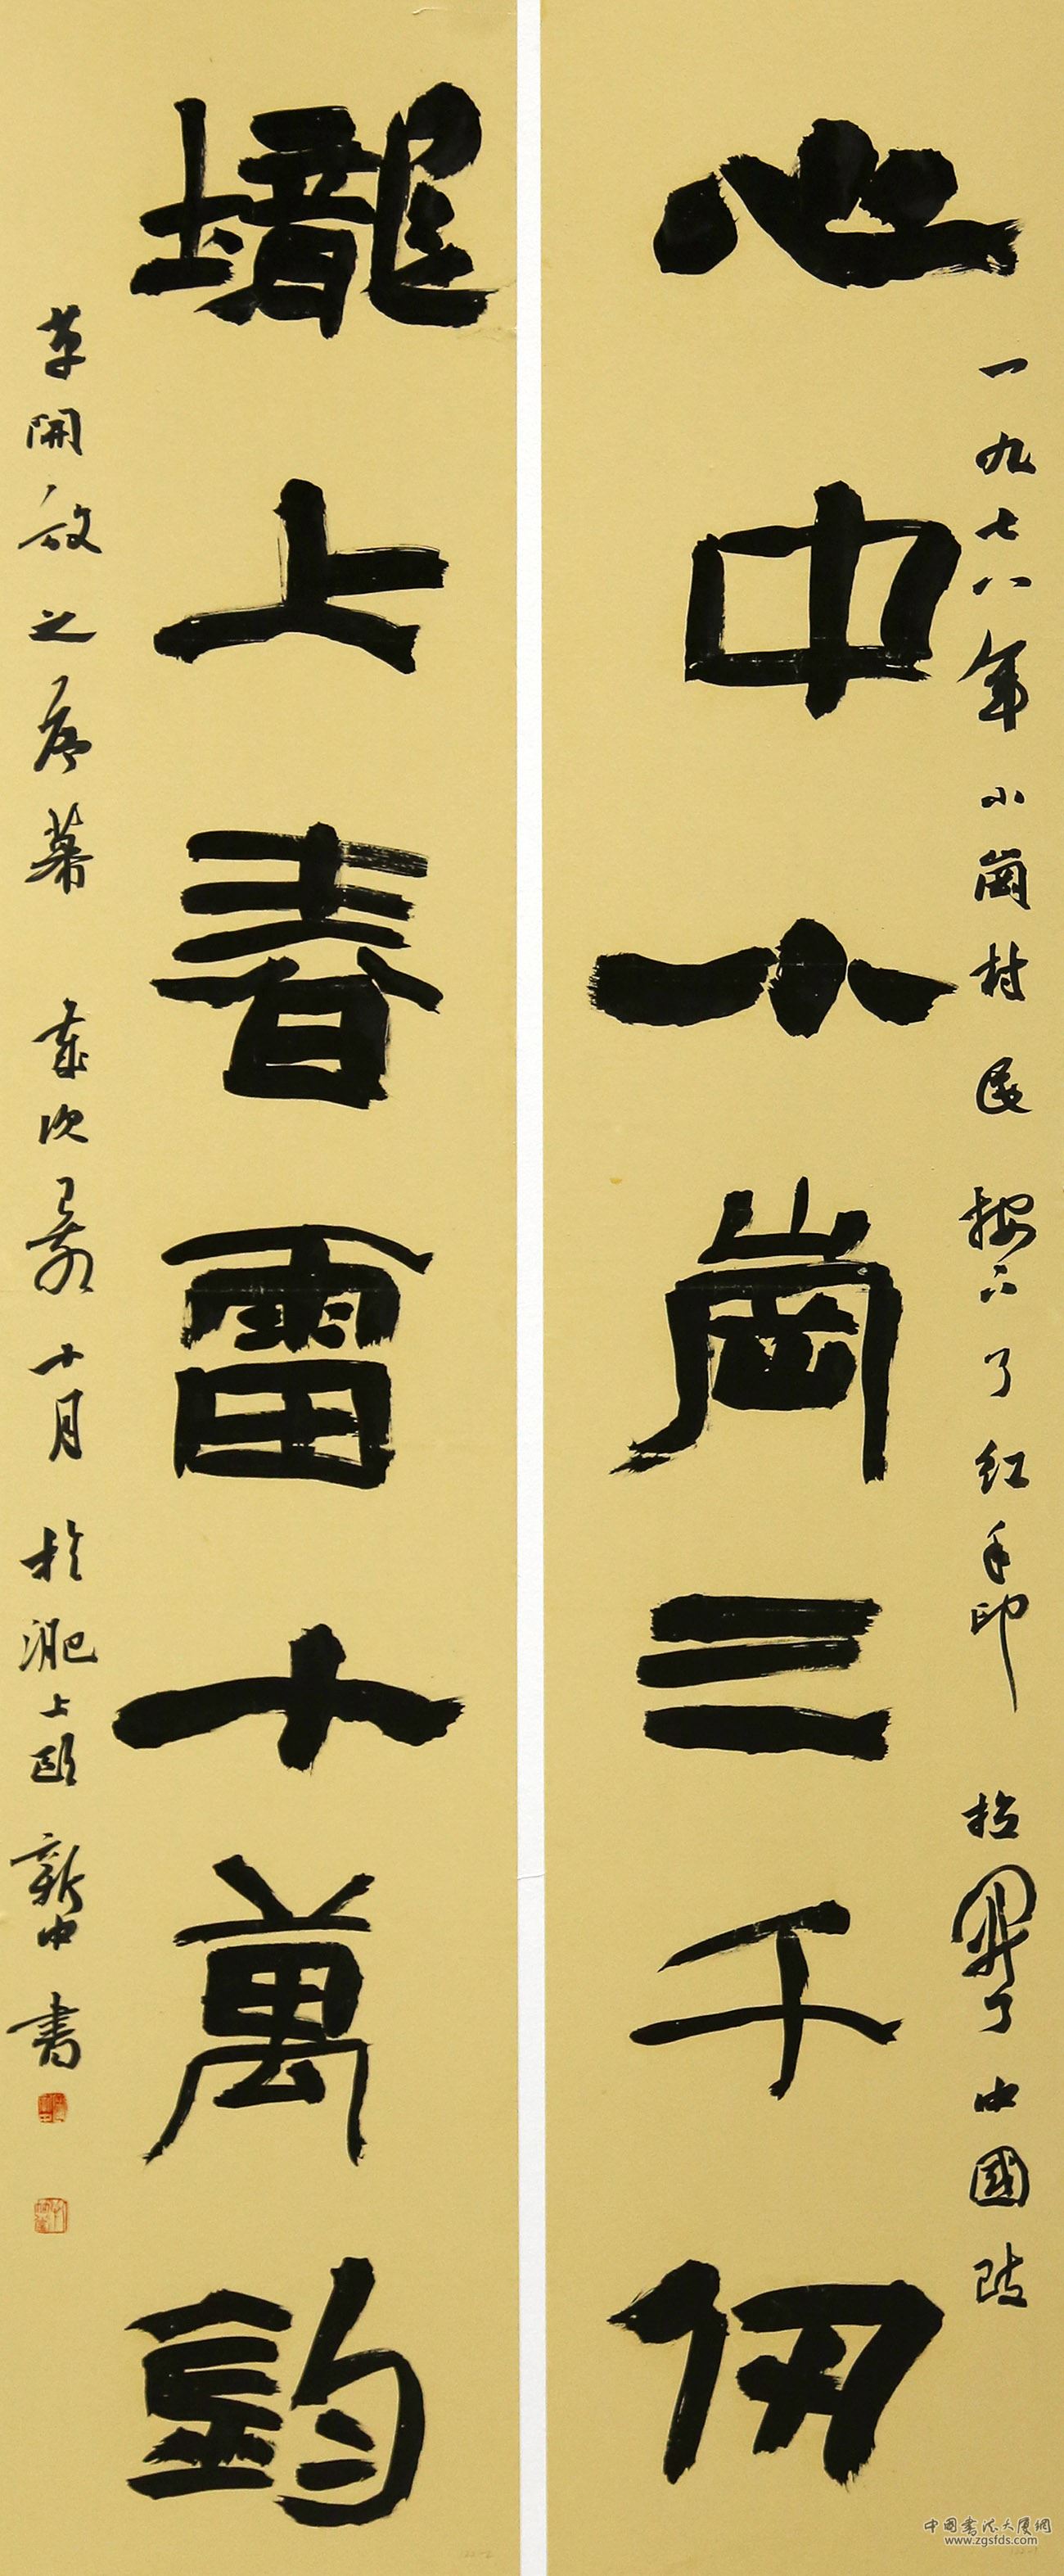 心中小崗三千仞
壠上春雷十萬鈞
一九七八年小崗村民按下了红手印拉開了中國改
革開放之序幕 歲次己亥十月於淝上歐新中書
中國書法大廈網
www.zgsfds.com